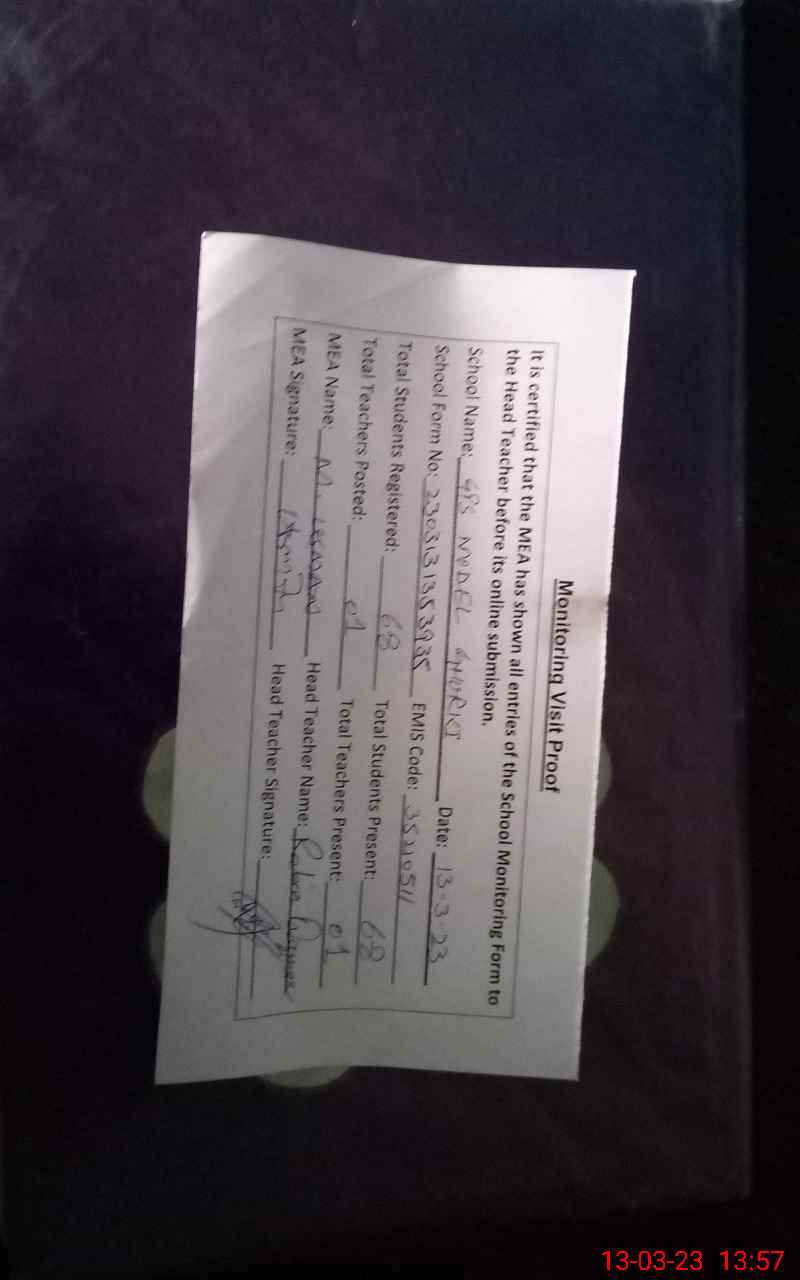 Monitoring Visit Proof
It is certified that the MEA has shown all entries of the School Monitoring Form to
the Head Teacher before its online submission.
School Name: GPS MODEL GHURKI Date: 13-3-23
School Form No: 2303131353935 EMIS Code: 35410511
Total Students Registered: 68 Total Students Present: 68
Total Teachers Posted: 01 Total Teachers Present: 01
MEA Name: M. USMAN Head Teacher Name: Rabia
MEA Signature: Head Teacher Signature:
13-03-23 13:57